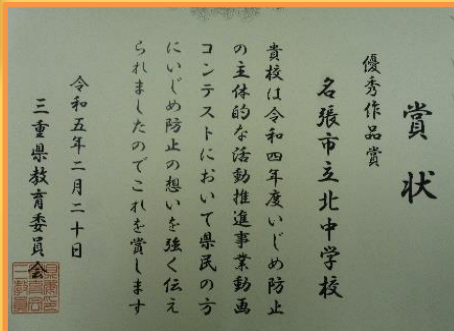 賞状
優秀作品賞
名張市立北中学校
貴校は令和四年度いじめ防止
の主体的な活動推進事業動画
コンテストにおいて県民の方
にいじめ防止の想いを強く伝え
られましたのでこれを賞します
令和五年二月二十日
三重県教育委員会